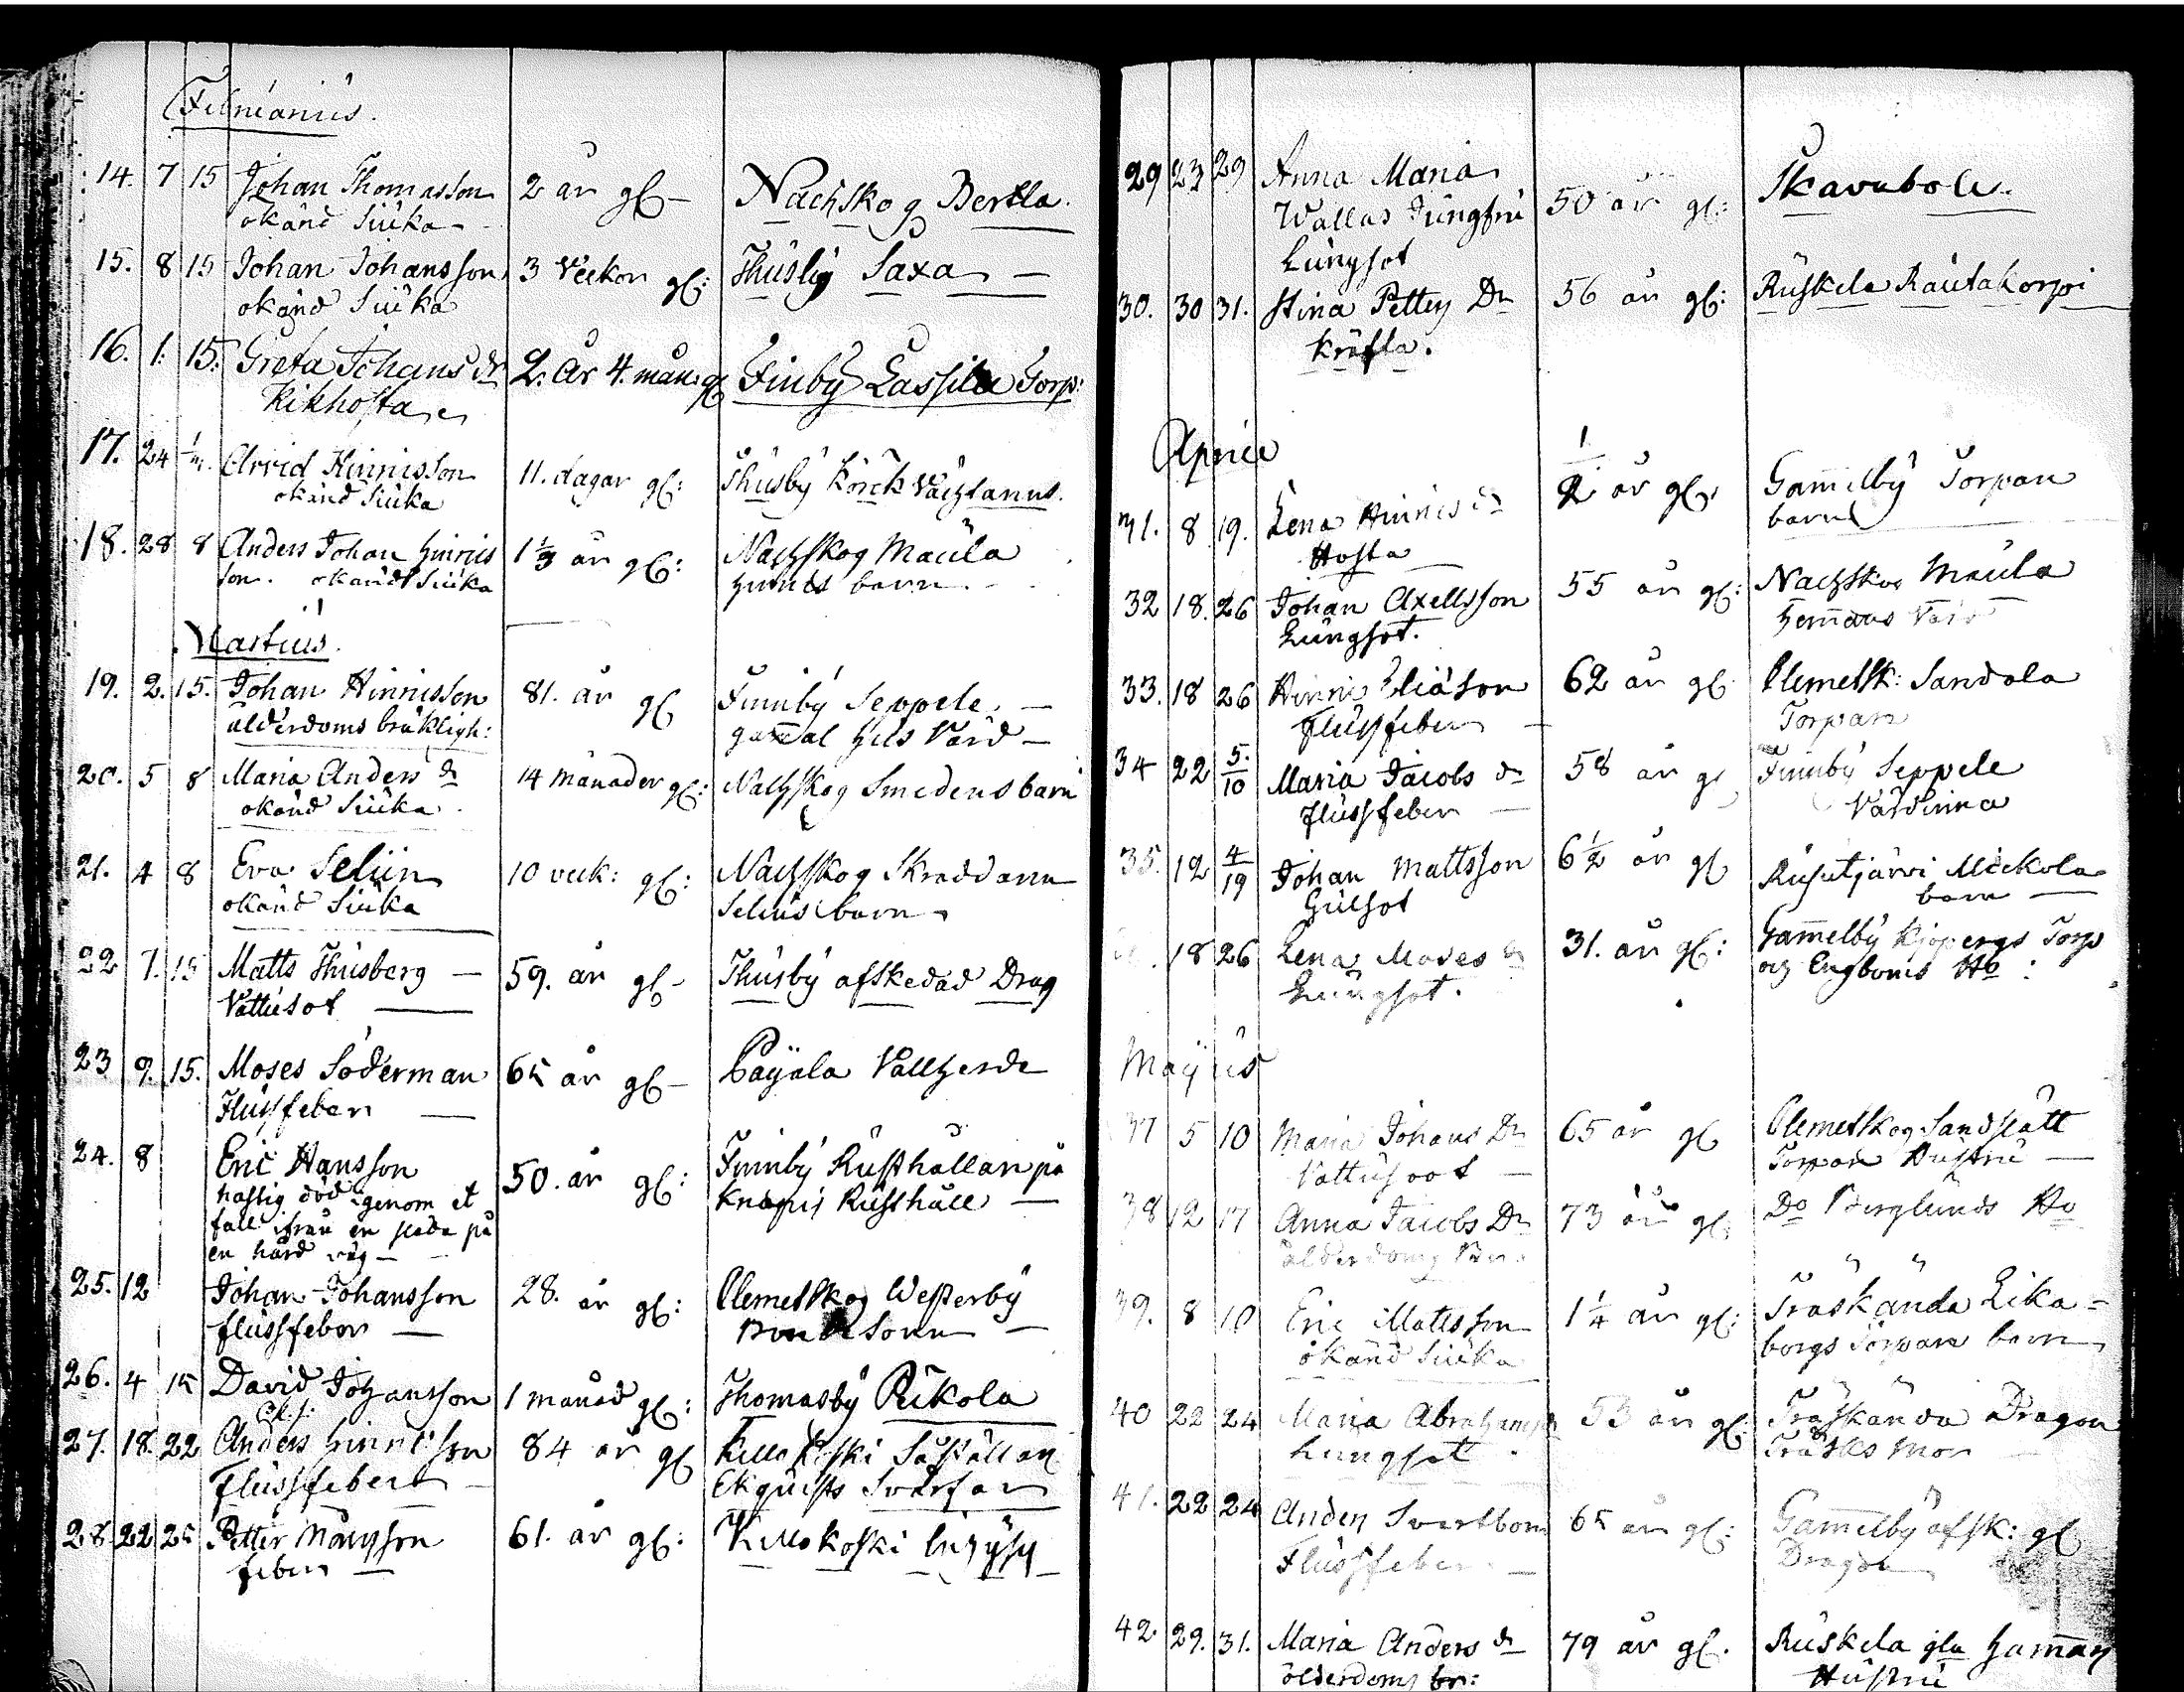 Februarius.
14. 7 15 Johan Thomasson 2 år gl Nachskog Bertla.
okänd Siuka
15. 8 15 Johan Johansson 3 Veckor gl: Thusby Saxa
okänd Siuka
16. 1. 15. Greta Johans dr 2. år 4. mån: gl Finby Lassila Torp:
Kikhosta
17. 24 1/m. Arvid Hinricsson 11. dagar gl: Thusby
okänd Siuka
18. 28 8 Anders Johan Hinrics 1 1/3 år gl: Nachskog Maula
son. okänd Siuka barn
Martius.
19. 2. 15. Johan Hinricsson 81. år gl Finnby Seppele
ålderdoms bräkligh: gammal Värd
20. 5 8 Maria Anders dr 14 månader gl: Nachskog Smedens barn
okänd Siuka
21. 4 8 Eva Selin 10 veck: gl: Nachskog Skräddaren
okänd Siuka Selins barn
22 7. 15 Matts Thusberg 59. år gl Thusby afskedad Drag
Vattusot
23 9. 15. Moses Söderman 65 år gl Pajala Vallherde
Flussfeber
24. 8 Eric Hansson 50. år gl: Finnby Rusthållan på
hastig död genom et Knapis Rusthåll
fall ifrån en släda på
en hård väg
25. 12 Johan Johansson 28. år gl: Clemetskog Westerby
flussfeber Bonde Sonn
26. 4 15 David Johansson 1 månad gl: Thomasby Pukola
ok. s:
27. 18. 22 Anders Hinricsson 84 år gl Kellokoski
Flussfeber Ekquists Svärfar
28. 22 25 Petter Månsson 61. år gl: Kellokoski
feber
29 23 29 Anna Maria 50 år gl: Skavabole.
Wallas Jungfru
Lungsot
30. 30 31. Stina Petters Dr 56 år gl: Ruskela Rautakorpi
kräfta.
April
31. 8 19. Lena Hinrics dr 1/2 år gl: Gammelby Torpar
Hosta barn
32 18. 26 Johan Axellsson 55 år gl: Nachskog Maula
Lungsot. Hemmans Värd
33. 18 26 Hinric Eliason 62 år gl Clemetsk: Sandola
Flussfeber Torpare
34 22 5./10 Maria Jacobs dr 58 år gl Finnby Seppele
flussfeber Värdinna
35. 12 4/19 Johan Mattsson 6 1/2 år gl Rusutjärvi Mickola
Gulsot barn
18 26 Lena Moses dr 31. år gl: Gammelby Torp
Lungsot. och Engboms Ho:
Majus
37 5 10 Maria Johans Dr 65 år gl Clemetskog Sandslätt
Vattusoot Torpare Hustru
38 12 17 Anna Jacobs Dr 73 år gl: Do Berglunds Ho
ålderdoms
39. 8 10 Eric Mattsson 1 1/4 år gl: Träskända Lika-
okänd Siuka borgs Torpare barn
40 22 24 Maria Abrahams 53 år gl: Träskända Dragon
Lungsot Träsks Mor
41. 22 24 Anders Svartbom 65 år gl: Gammelby afsk: gl
Flussfeber Dragon
42. 29. 31. Maria Anders dr 79 år gl. Ruskela gla
ålderdoms br: Hustru